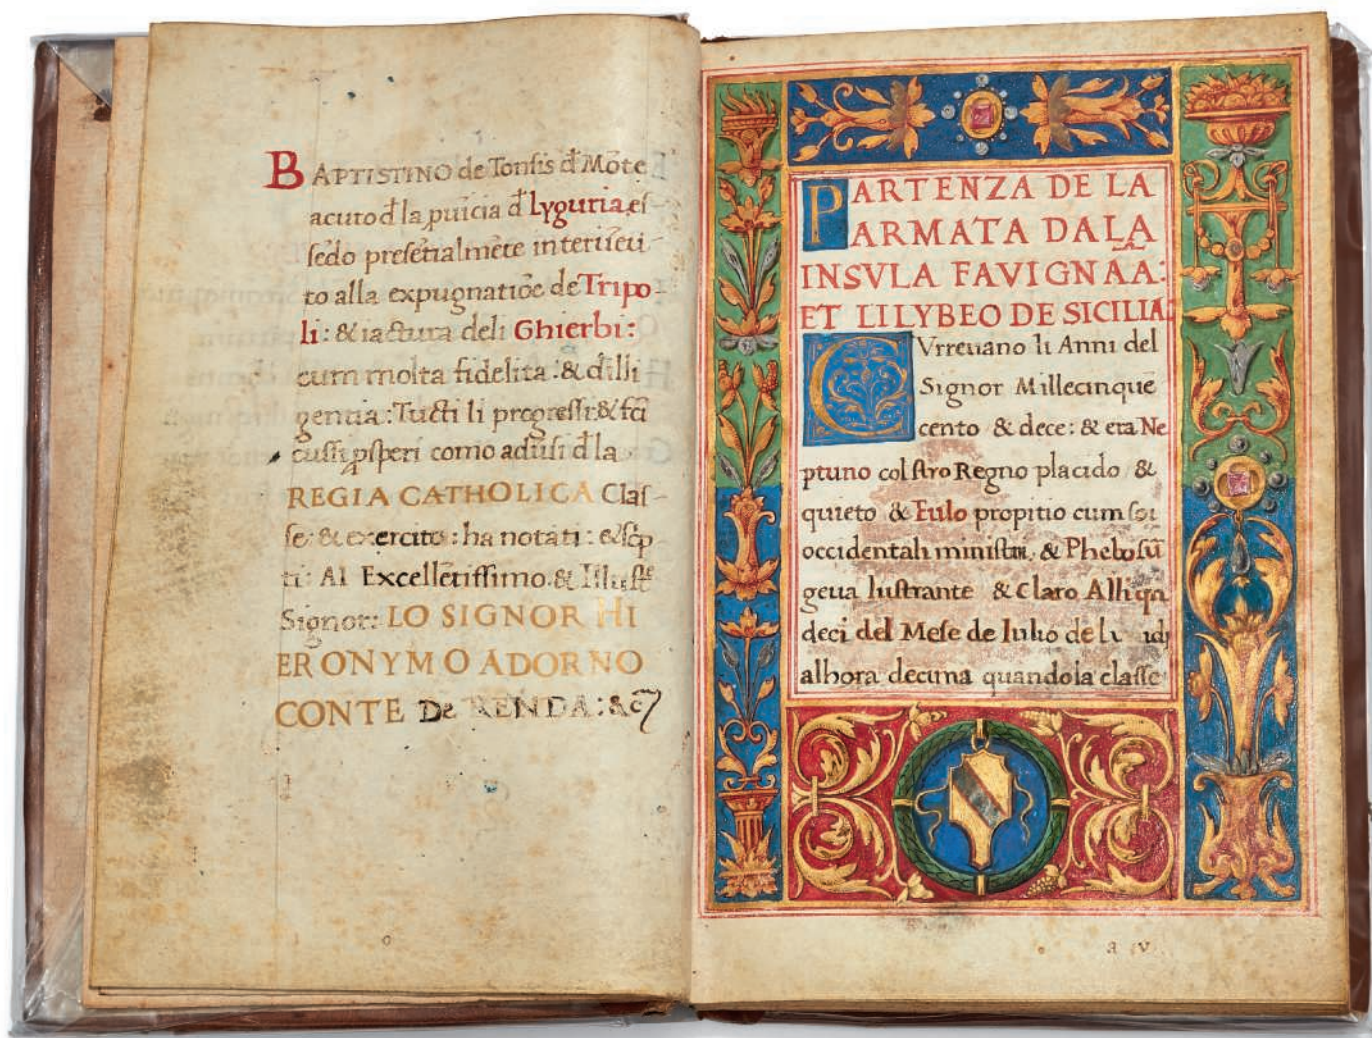 BAPTISTINO de Tonsis đ Mõte
acuto đ la ꝓuĩcia đ Lyguria, es
sẽdo presẽtialmẽte interueũ
to alla expugnatiõe de Tripo-
li: & iactura deli Ghierbi:
cum molta fidelita: & dilli
gentia: Tucti li progressi: & fci
cussi ꝓsperi como adũsi đ la
REGIA CATHOLICA Clas-
se: & exercito: ha notati: & scp
ti: Al Excellẽtissimo. & Illustᵉ
Signor: LO SIGNOR HI
ERONYMO ADORNO
CONTE De RENDA: &c̃
PARTENZA DE LA
ARMATA DALA
INSVLA FAVIGNAÃA:
ET LILYBEO DE SICILIA
CVrreuano li Anni del
Signor Millecinque
cento & dece: & era Ne
ptuno col stro Regno placido &
quieto & Eulo propitio cum soi
occidentali ministri, & Phebo sũ
geua lustrante & Claro Alli qn
deci del Mese de Iulio de
alhora decima quando la classe
a v